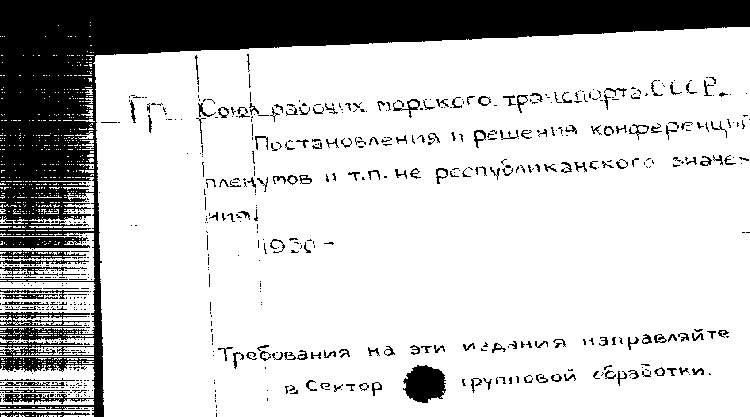 Гр. Союз рабочих морского транспорта СССР.
Постановления и решения конференций
пленумов и т.п. не республиканского значе-
ния.
1930 -
Требования на эти издания направляйте
в Сектор групповой обработки.